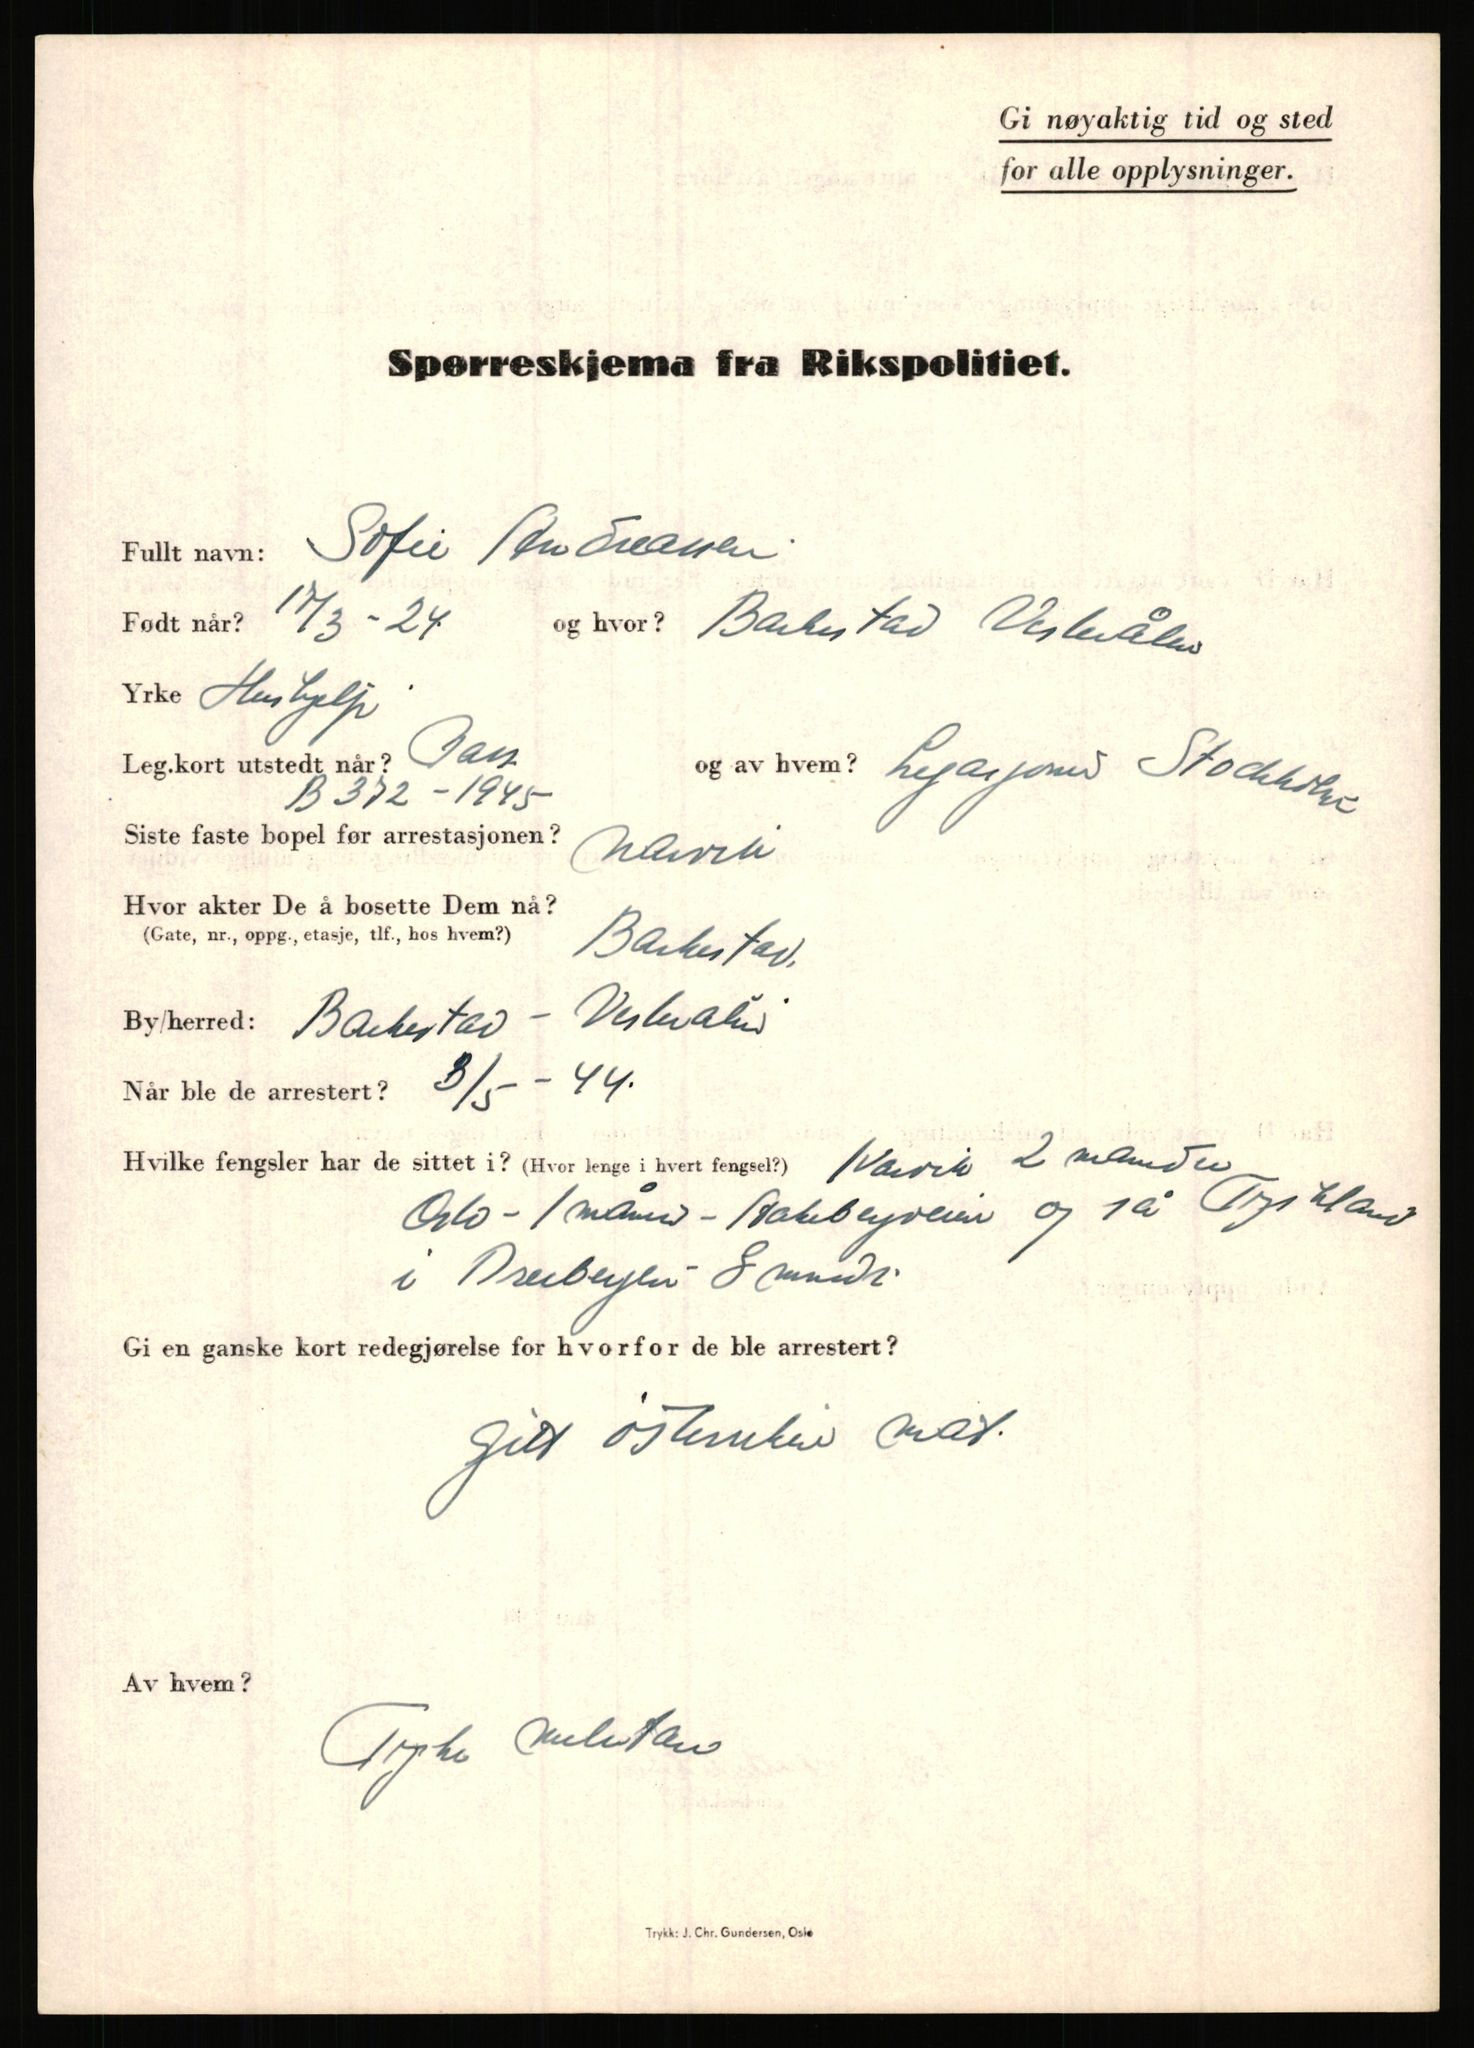 Gi nøyaktig tid og sted
for alle opplysninger.
Spørreskjema fra Rikspolitiet.
Fullt navn: Sofie Andreassen
Født når? 17/3 - 24 og hvor? Barkestad Vesterålen
Yrke Hushjelp
Leg.kort utstedt når? Pass og av hvem? Legasjonen Stockholm
B 372 - 1945
Siste faste bopel før arrestasjonen? Narvik
Hvor akter De å bosette Dem nå?
(Gate, nr., oppg., etasje, tlf., hos hvem?) Barkestad.
By/herred: Barkestad - Vesterålen
Når ble de arrestert? 3/5 - 44.
Hvilke fengsler har de sittet i? (Hvor lenge i hvert fengsel?) Narvik 2 måneder
Oslo - 1 måned - Åkebergveien og så Tyskland
i 8 mndr.
Gi en ganske kort redegjørelse for hvorfor de ble arrestert?
gitt mat.
Av hvem?
Tyske
Trykk: J. Chr. Gundersen, Oslo